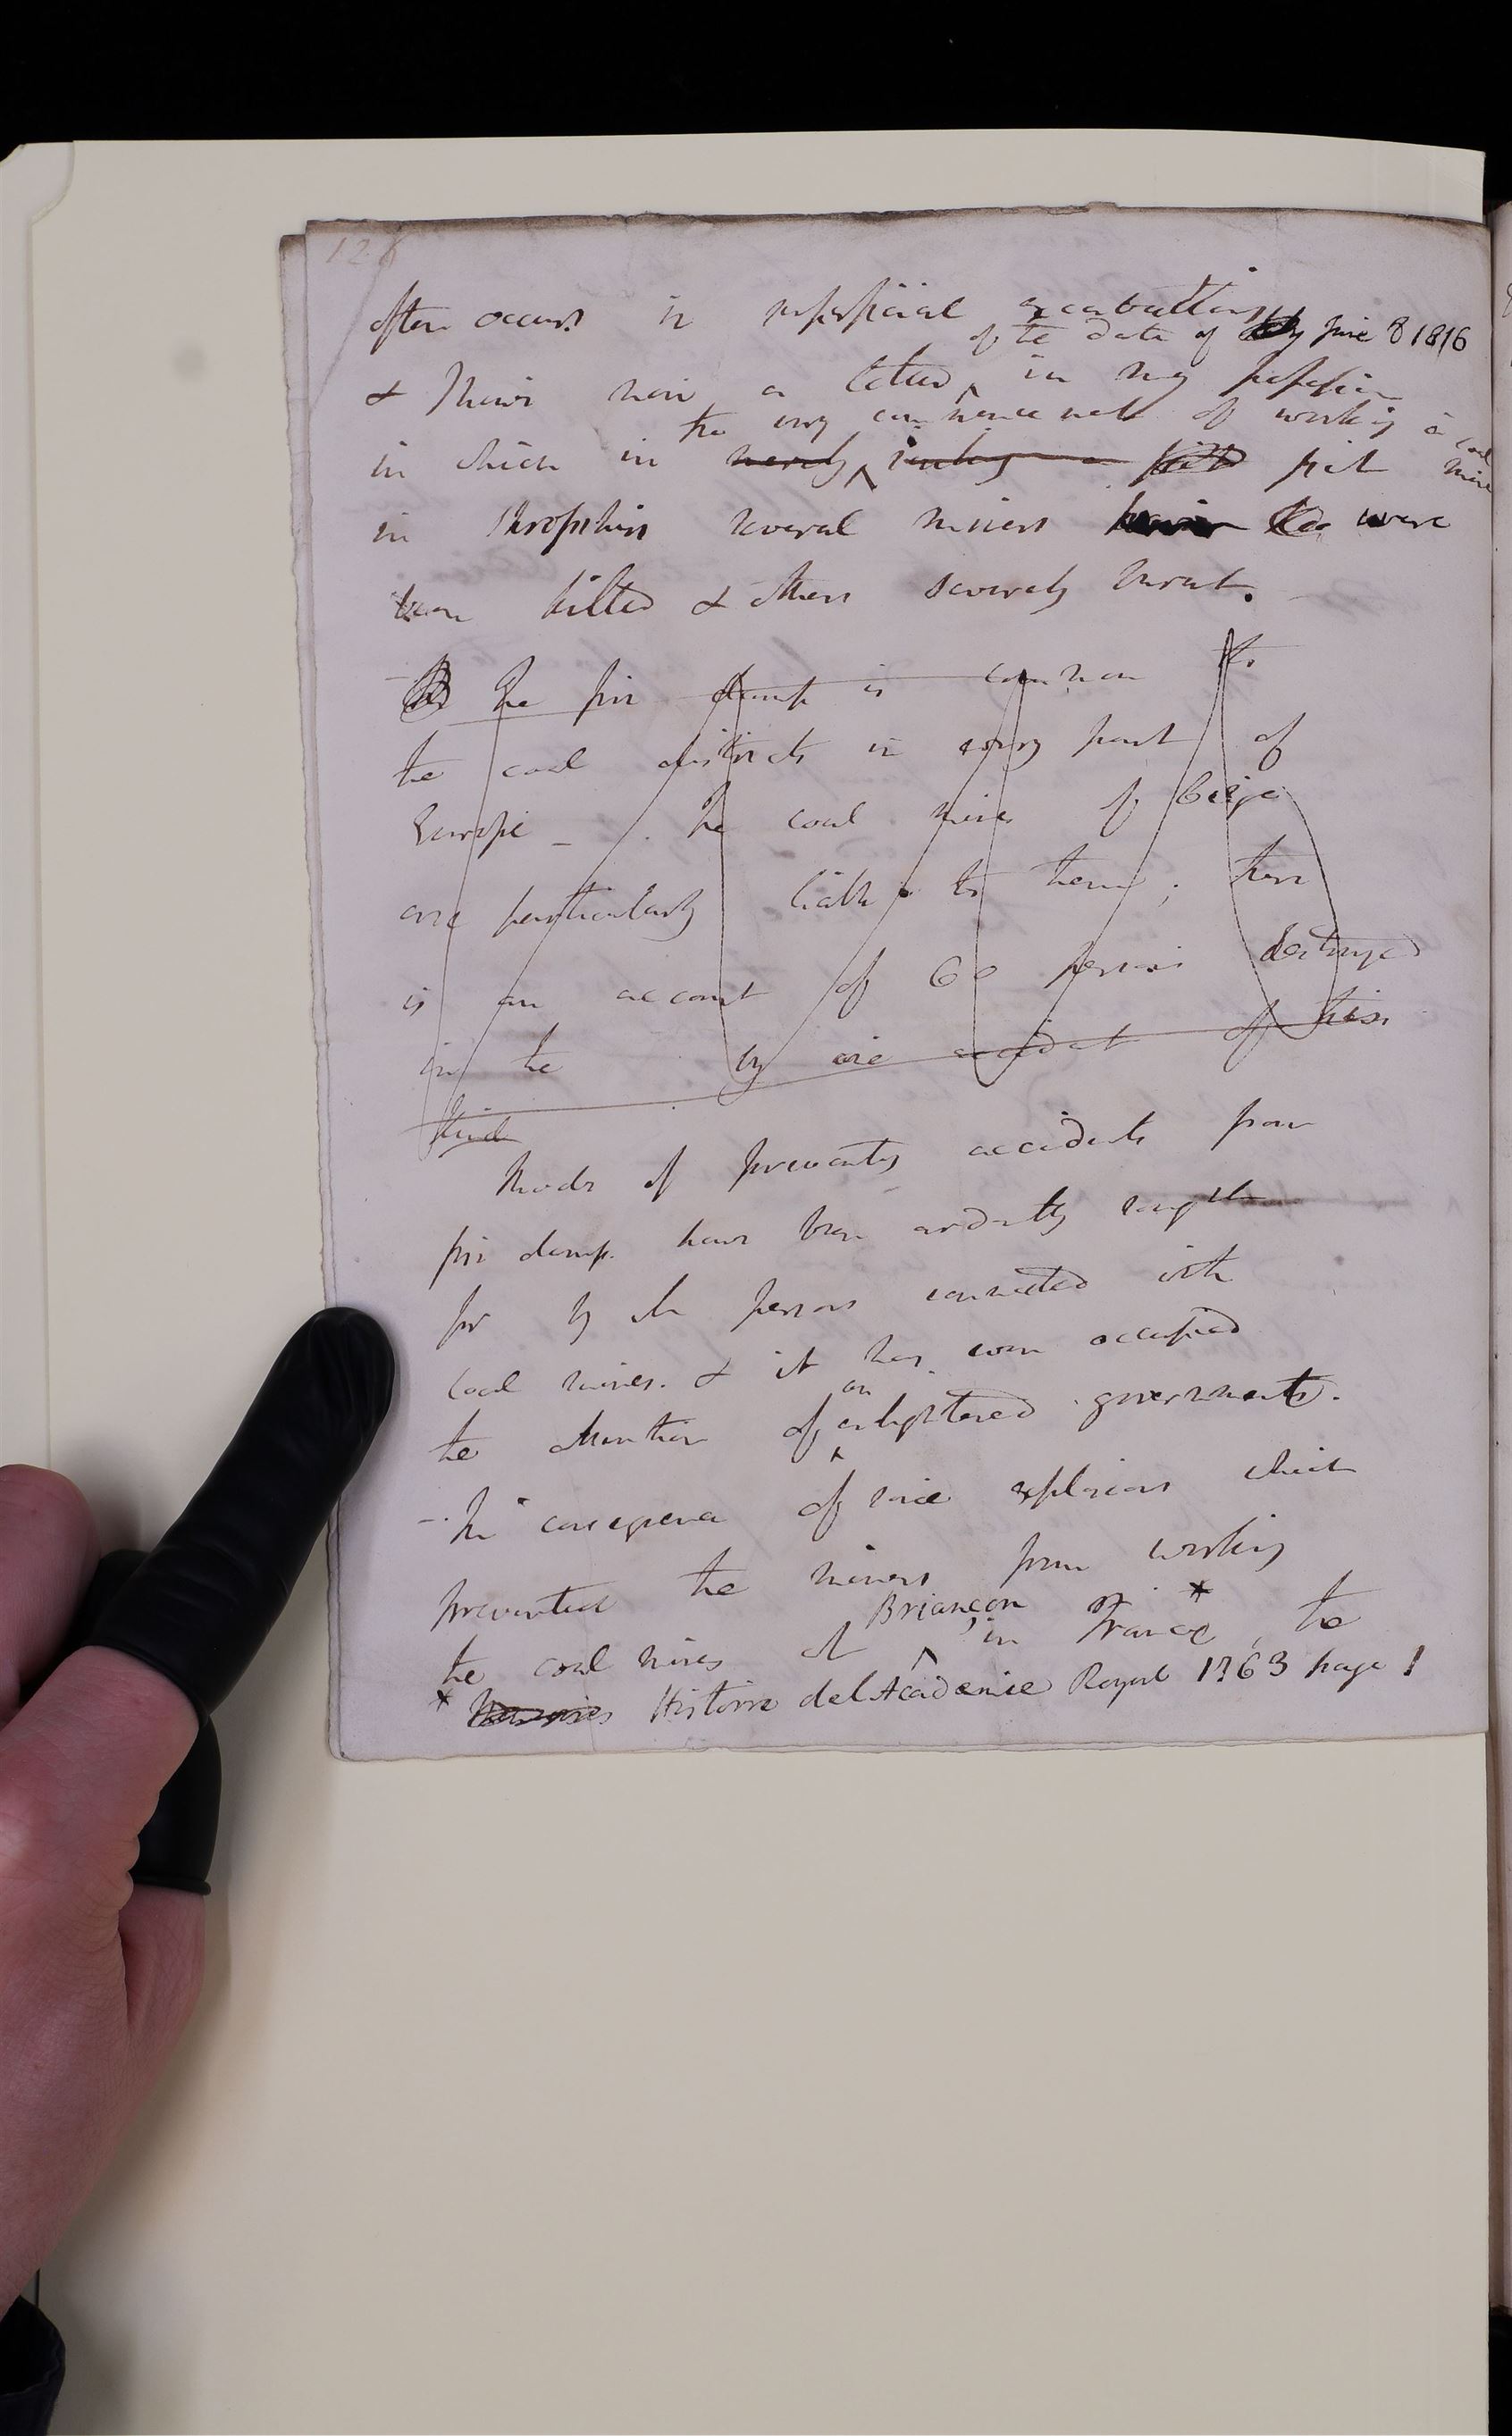 126
often occurs in superficial excavations
of the date of June 8 1816
& I have now a letter in my possession
the very commencement of working a coal mine
in which in merely sinking a pit
in Shropshire several miners were
been killed & others severely burnt.
The fire damp is common to
the coal districts in every part of
Europe _ . The coal mines of Liege
are particularly liable to them; there
is an account of 60 persons destroyed
in the by one accident of this
kind
Modes of preventing accidents from
fire damp have been ardently sought
for by all persons connected with
coal mines. & it has even occupied
an
the attention of enlightened governments.
In consequence of some explosions which
prevented the miners from working
Briançon
the coal mines at in France * the
* Memoires Histoire de l Academie Royal 1763 page 1